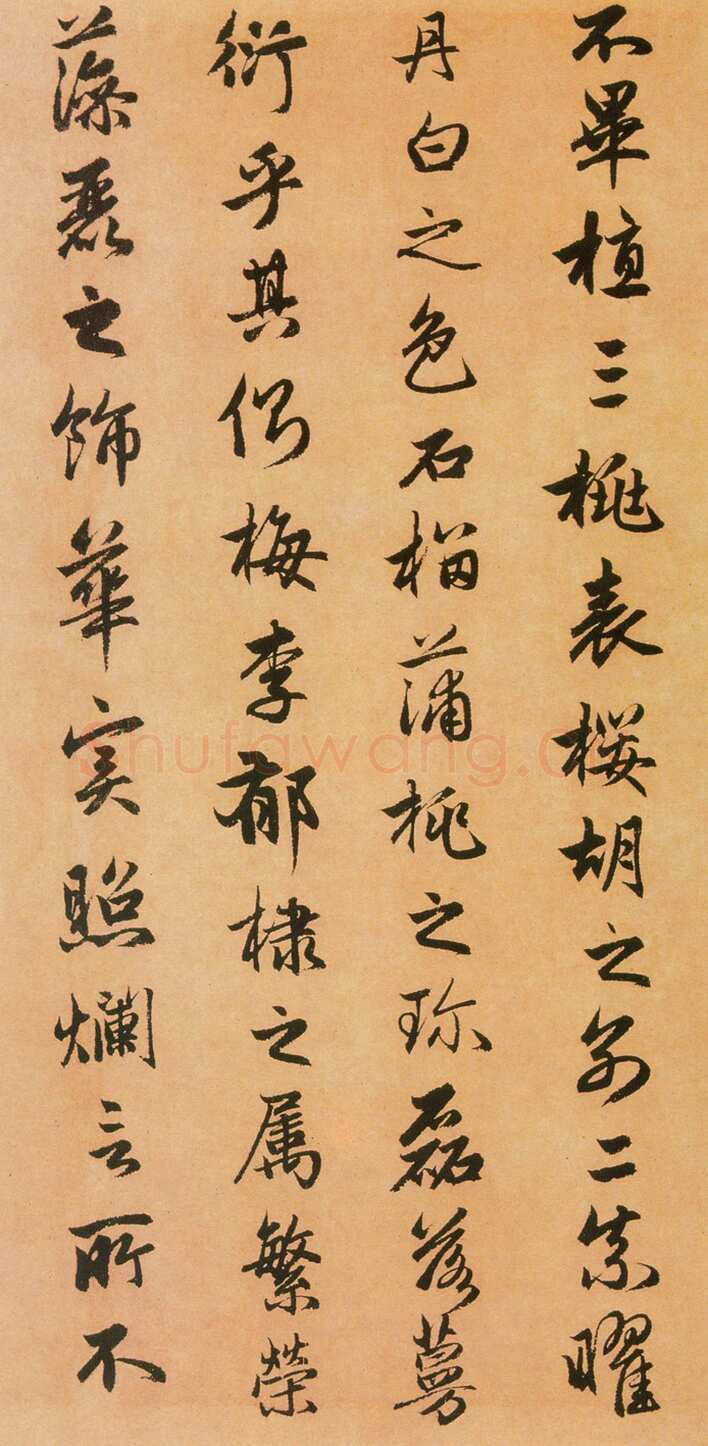 不畢植三桃表櫻胡之別二柰曜
丹白之色石榴蒲桃之珎磊落蔓
衍乎其側梅李郁棣之属繁榮
藻麗之飾華實照爛言所不
shufawang.c